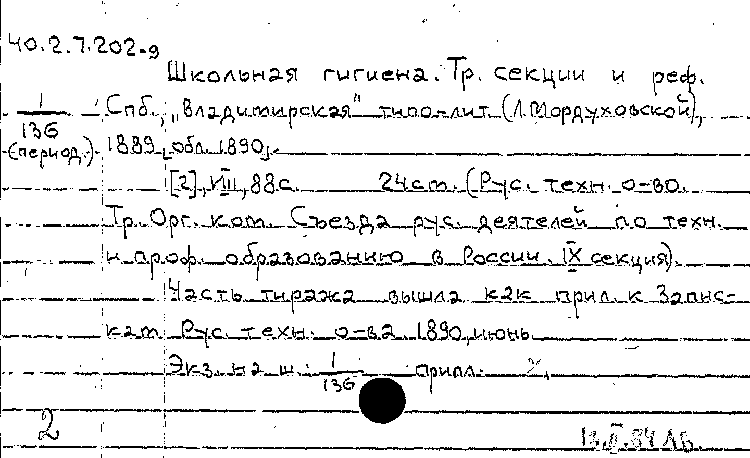 40.2.7.202-9
Школьная гигиена. Тр. секции и реф.
1/136 (период.)
Спб., "Владимирская" типо-лит. (Л. Мордуховской),
1889, обл. 1890.
[2], VIII, 88 с. 24 см. (Рус. техн. о-во.
Тр. Орг. ком. Съезда рус. деятелей по техн.
и проф. образованию в России. IX секция).
Часть тиража вышла как прил. к Запис-
кам Рус. техн. о-ва. 1890, июнь
Экз. на ш. 1/136 припл.
2
13.II.84 ЛБ.